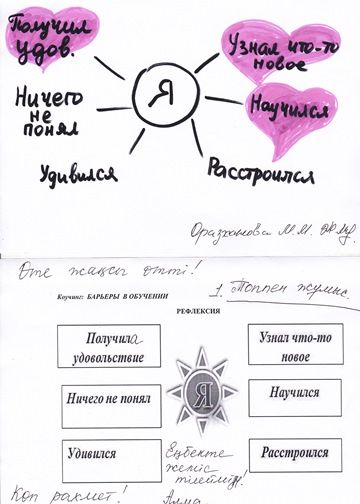 Получил
удов.
Узнал что-то
новое
Я
Ничего
не
понял
Научился
Удивился
Расстроился
Оразханова М.М.
Өте жақсы өтті!
Коучинг: БАРЬЕРЫ В ОБУЧЕНИИ
1. Топпен жұмыс.
РЕФЛЕКСИЯ
Получила
удовольствие
Узнал что-то
новое
Ничего не понял
Я
Научился
Удивился
Еңбекте
жеңіс
тілейміз!
Расстроился
Көп рахмет!
Алма